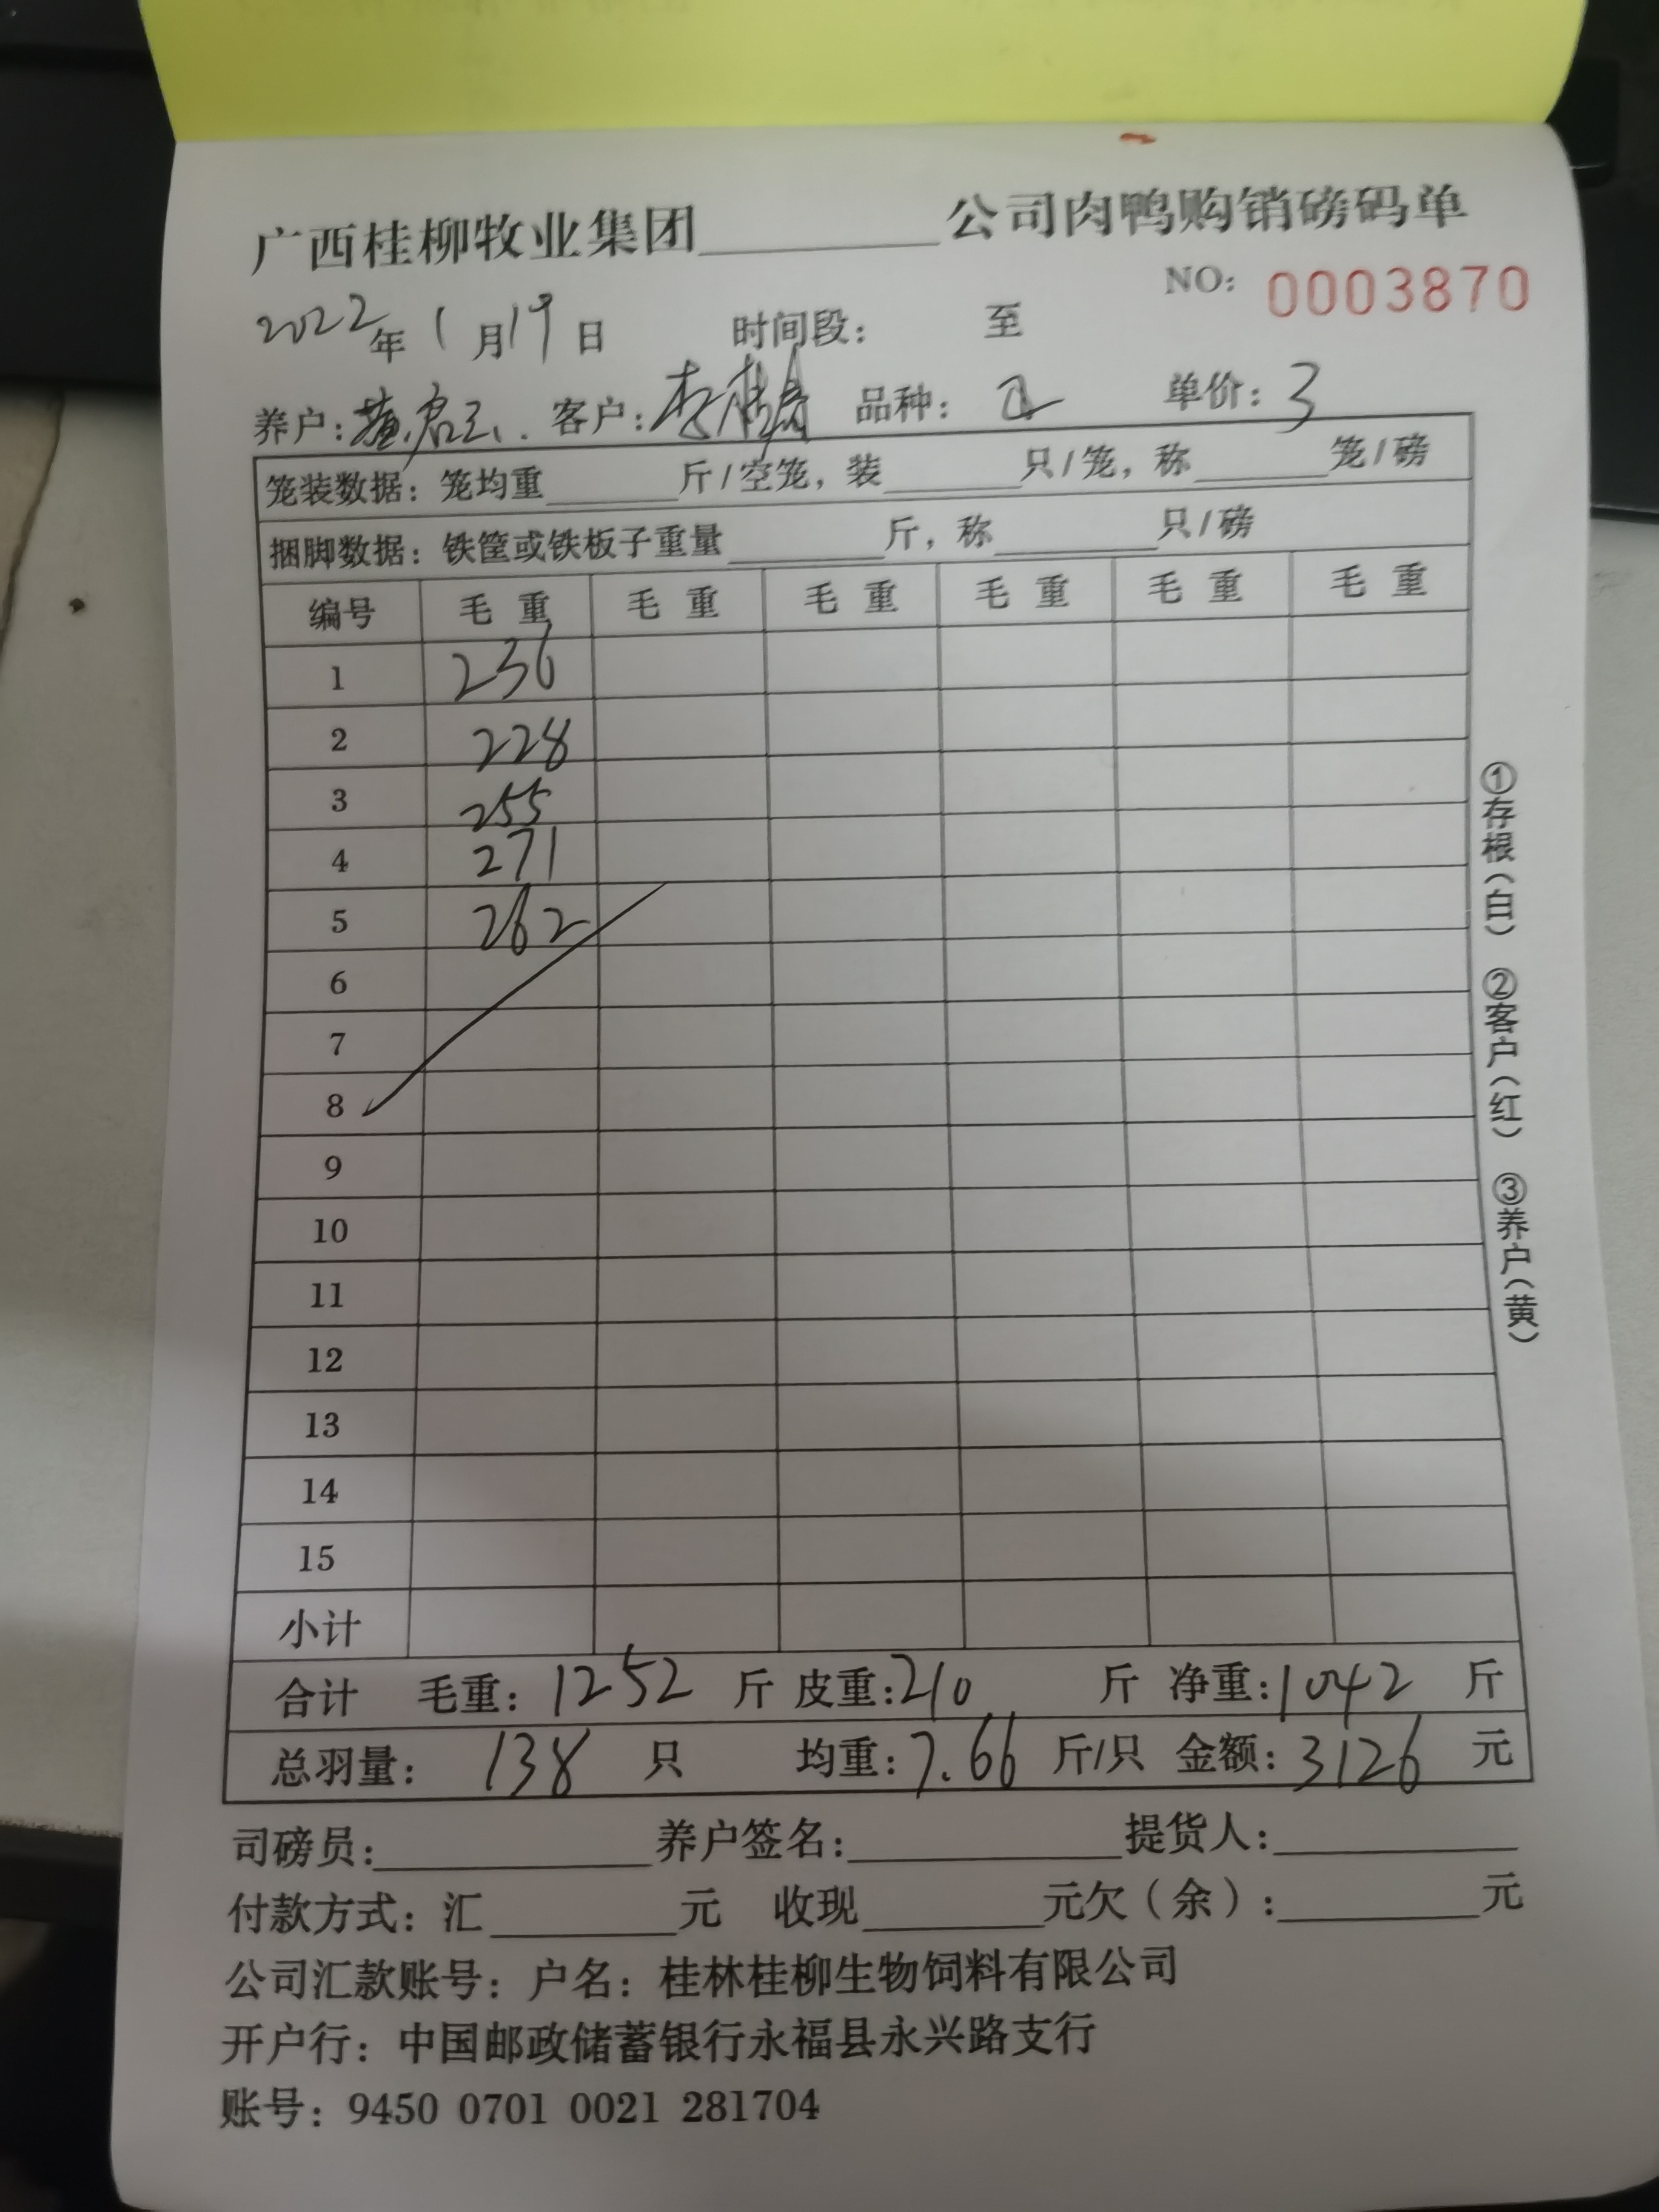 广西桂柳牧业集团________公司肉鸭购销磅码单
NO: 0003870
2022年1月19日 时间段: 至
养户: 客户: 品种: 单价: 3
笼装数据: 笼均重______斤/空笼, 装______只/笼, 称______笼/磅
捆脚数据: 铁筐或铁板子重量______斤, 称______只/磅
编号 毛重 毛重 毛重 毛重 毛重 毛重
1 236
2 228
3 255
4 271
5 262
6
7
8
9
10
11
12
13
14
15
小计
合计 毛重: 1252 斤 皮重: 210 斤 净重: 1042 斤
总羽量: 138 只 均重: 7.66 斤/只 金额: 3126 元
司磅员:________养户签名:________提货人:________
付款方式: 汇________元 收现________元欠(余):________元
公司汇款账号: 户名: 桂林桂柳生物饲料有限公司
开户行: 中国邮政储蓄银行永福县永兴路支行
账号: 9450 0701 0021 281704
①存根(白) ②客户(红) ③养户(黄)